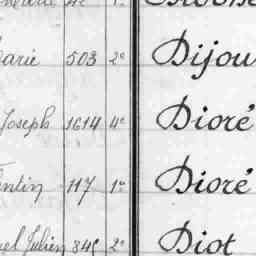 arie 503 2e Dijou
Joseph 1614 4e Dioré
ntin 117 1e Dioré
el Julien 845 2e Diot